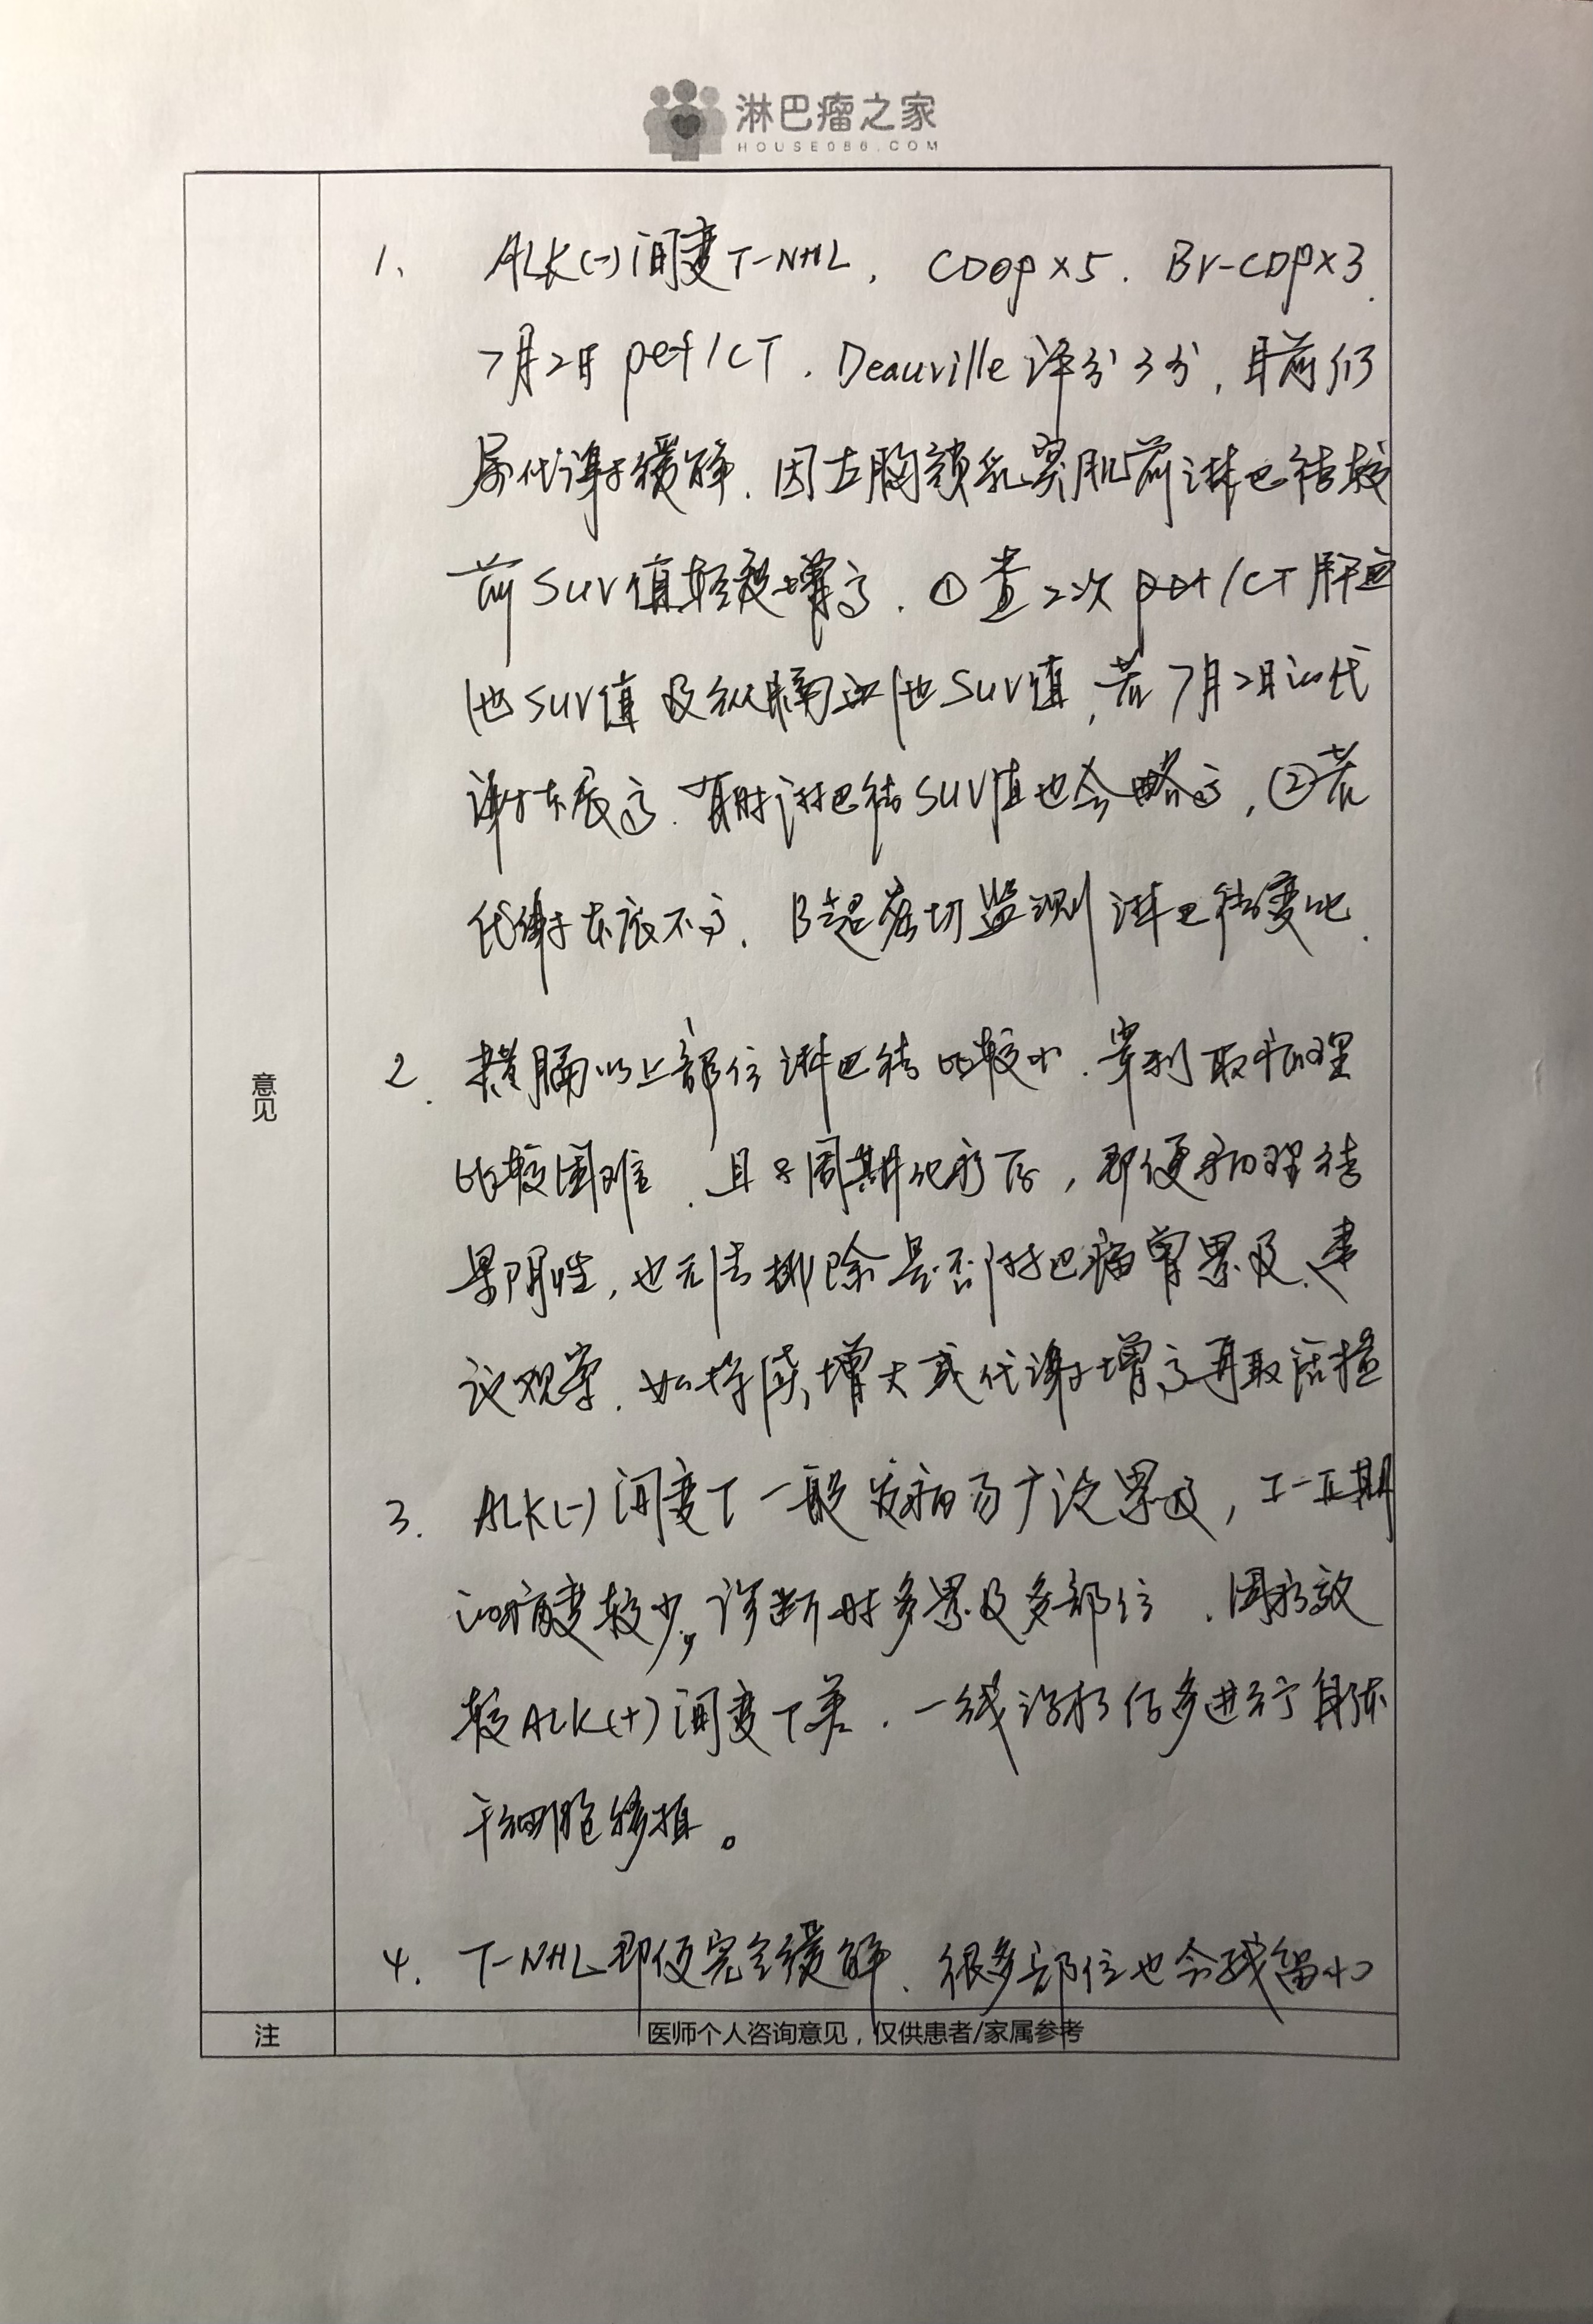 淋巴瘤之家
HOUSE086.COM
意见
1、 ALK(-)间变T-NHL, CDOP×5. Br-CDP×3.
7月2日 pet/CT. Deauville评分3分,目前仍
属代谢缓解.因左胸锁乳突肌前淋巴结较
前SUV值轻度增高.①查2次pet/CT肝血
池SUV值及纵膈血池SUV值,若7月2日的代
谢本底高.有时淋巴结SUV值也会略高,②若
代谢本底不高.B超密切监测淋巴结变化.
2. 横膈以上部位淋巴结比较小.穿刺取病理
比较困难.且8周期化疗后,即便病理结
果阴性,也无法排除是否淋巴瘤曾累及.建
议观察.如持续增大或代谢增高再取活检
3. ALK(-)间变T一般发病为广泛累及,I-II期
的病变较少,诊断时多累及多部位.因疗效
较ALK(+)间变T差.一线治疗后多进行自体
干细胞移植。
4. T-NHL即便完全缓解.很多部位也会残留小
注
医师个人咨询意见，仅供患者/家属参考